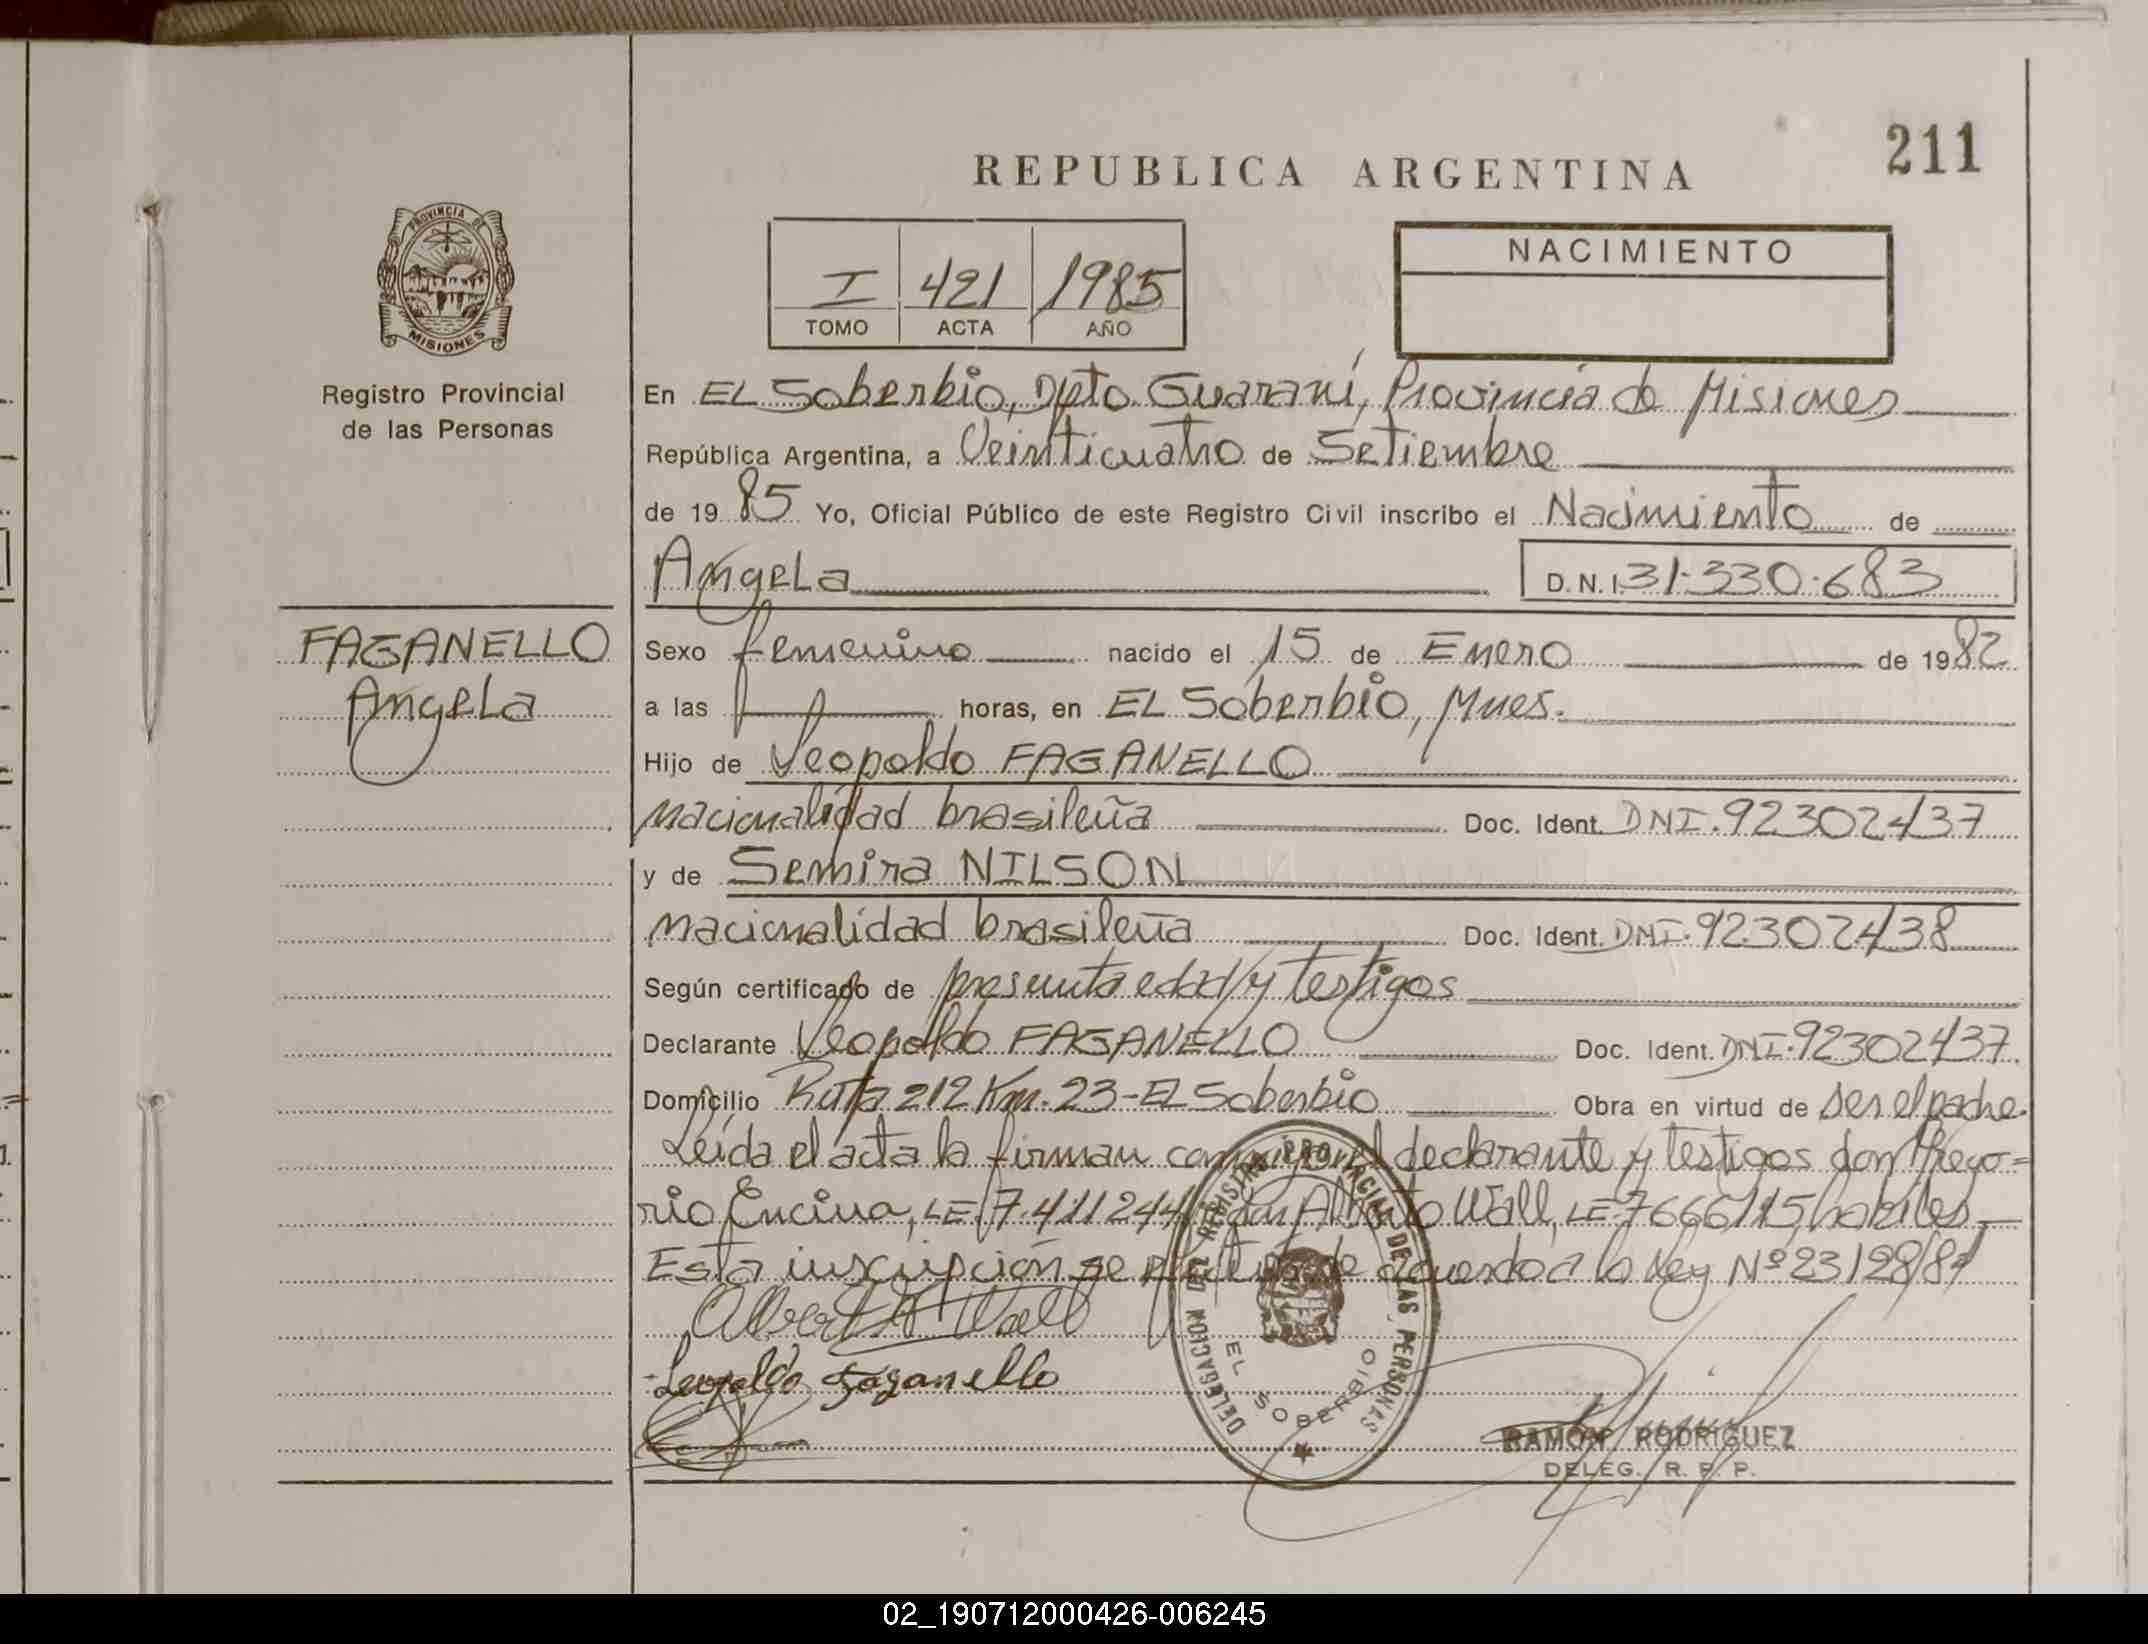 211
REPUBLICA ARGENTINA
PROVINCIA DE
MISIONES
Registro Provincial
de las Personas
I 421 1985
TOMO ACTA AÑO
NACIMIENTO
En EL Soberbio, Dpto. Guaraní, Provincia de Misiones
República Argentina, a Veinticuatro de Setiembre
de 1985 Yo, Oficial Público de este Registro Civil inscribo el Nacimiento de
Angela D.N.I. 31.330.683
FAGANELLO
Angela
Sexo femenino nacido el 15 de Enero de 1982
a las horas, en EL Soberbio, Mnes.
Hijo de Leopoldo FAGANELLO
nacionalidad brasileña Doc. Ident. DNI. 92302437
y de Semira NILSON
nacionalidad brasileña Doc. Ident. DNI. 92302438
Según certificado de presunta edad y testigos
Declarante Leopoldo FAGANELLO Doc. Ident. DNI. 92302437
Domicilio Ruta 212 Km. 23-EL Soberbio Obra en virtud de ser el padre.
Leída el acta la firman conmigo el declarante y testigos don Grego=
rio Encina, LE. 7.411244 y don Alberto Wall, LE 7666115 habiles
Esta inscripción se de acuerdo a la Ley Nº 23128/84
Alberto Wall
Leopoldo Faganello
DELEGACION DEL REGISTRO PROVINCIAL DE LAS PERSONAS
EL SOBERBIO
RAMON RODRIGUEZ
DELEG. R. P. P.
02_190712000426-006245